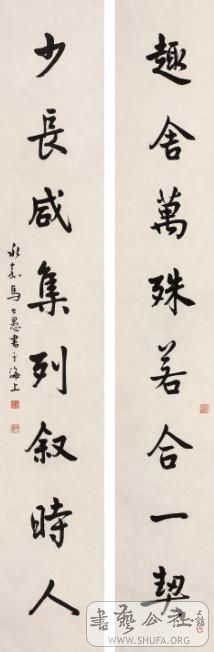 趣舍萬殊若合一契
少長咸集列敘時人
永嘉馬公愚書于海上
書藝公社
WWW.SHUFA.ORG